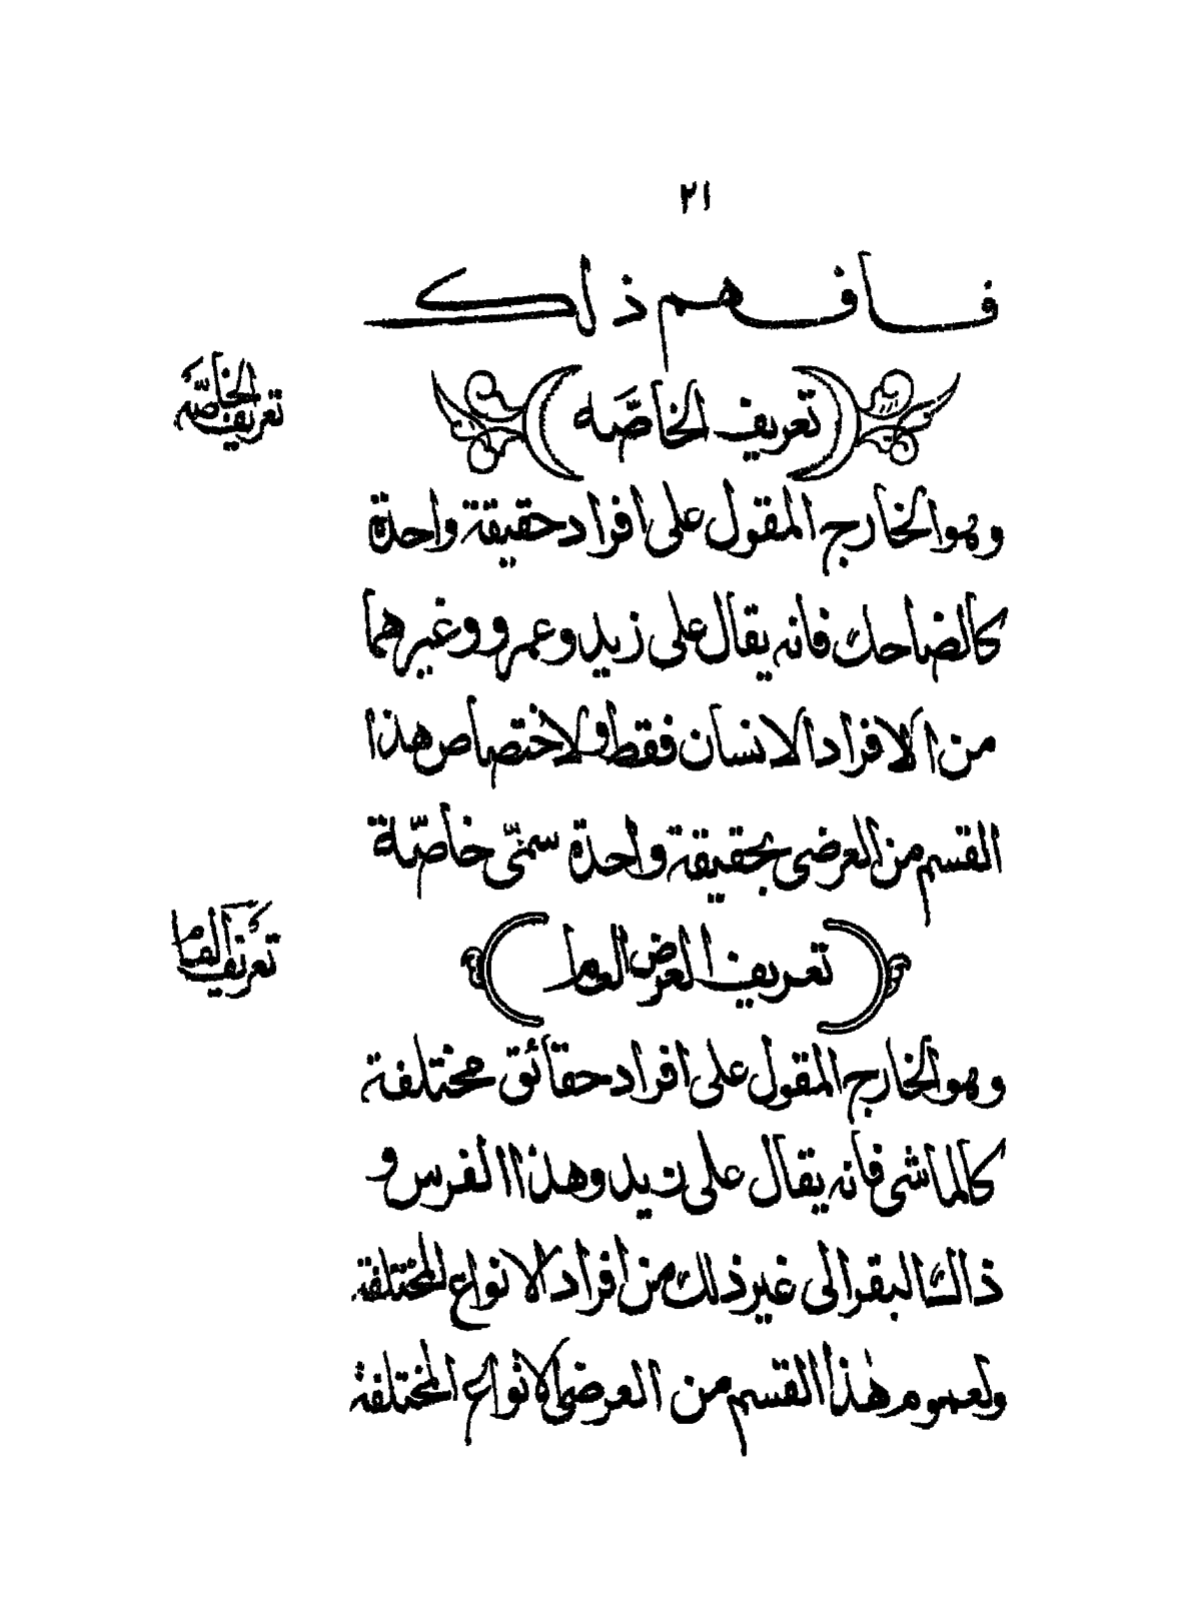 ٢١
فافهم ذلك
تعريف الخاصّة
(تعريف الخاصَّه)
وهو الخارج المقول على افراد حقيقة واحدة
كالضاحك فانه يقال على زيد وعمرو وغيرهما
من الافراد الانسان فقط ولاختصاص هذا
القسم من العرضى بحقيقة واحدة سمّى خاصّة
تعريف العام
(تعريف العرض العام)
وهو الخارج المقول على افراد حقائق مختلفة
كالماشى فانه يقال على زيد وهذا الفرس و
ذالك البقر الى غير ذلك من افراد الانواع المختلفة
ولعموم هذا القسم من العرضى الانواع المختلفة